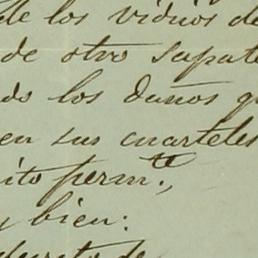 de los vidrios de
de otro sapate
do los daños q
en sus cuarteles
ito permte.,
y bien:
de